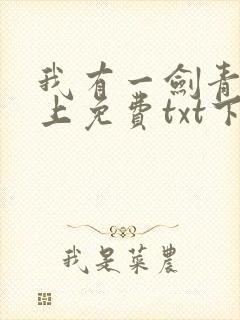 我有一劍青
上免費txt下
我是菜農